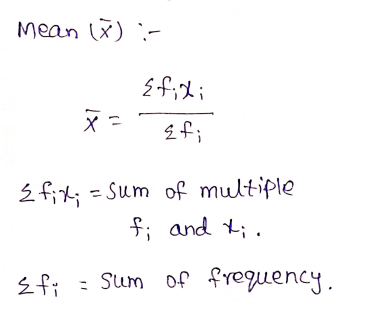 Mean (x̄) :-
Σfixi
x̄ =
Σfi
Σfixi = Sum of multiple
fi and xi.
Σfi = Sum of frequency.